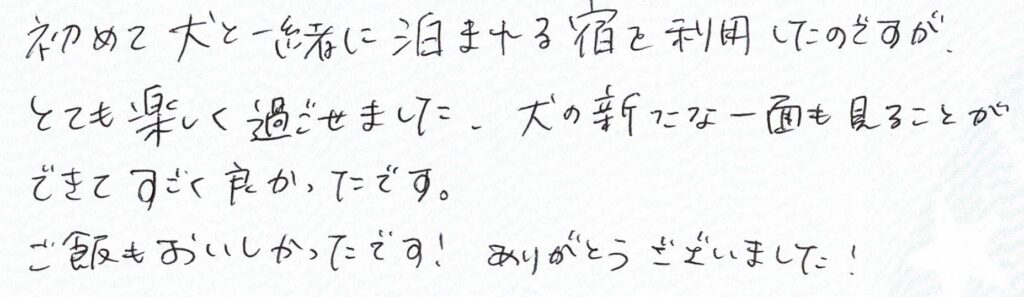 初めて犬と一緒に泊まれる宿を利用したのですが、
とても楽しく過ごせました。犬の新たな一面も見ることが
できてすごく良かったです。
ご飯もおいしかったです！ ありがとうございました！